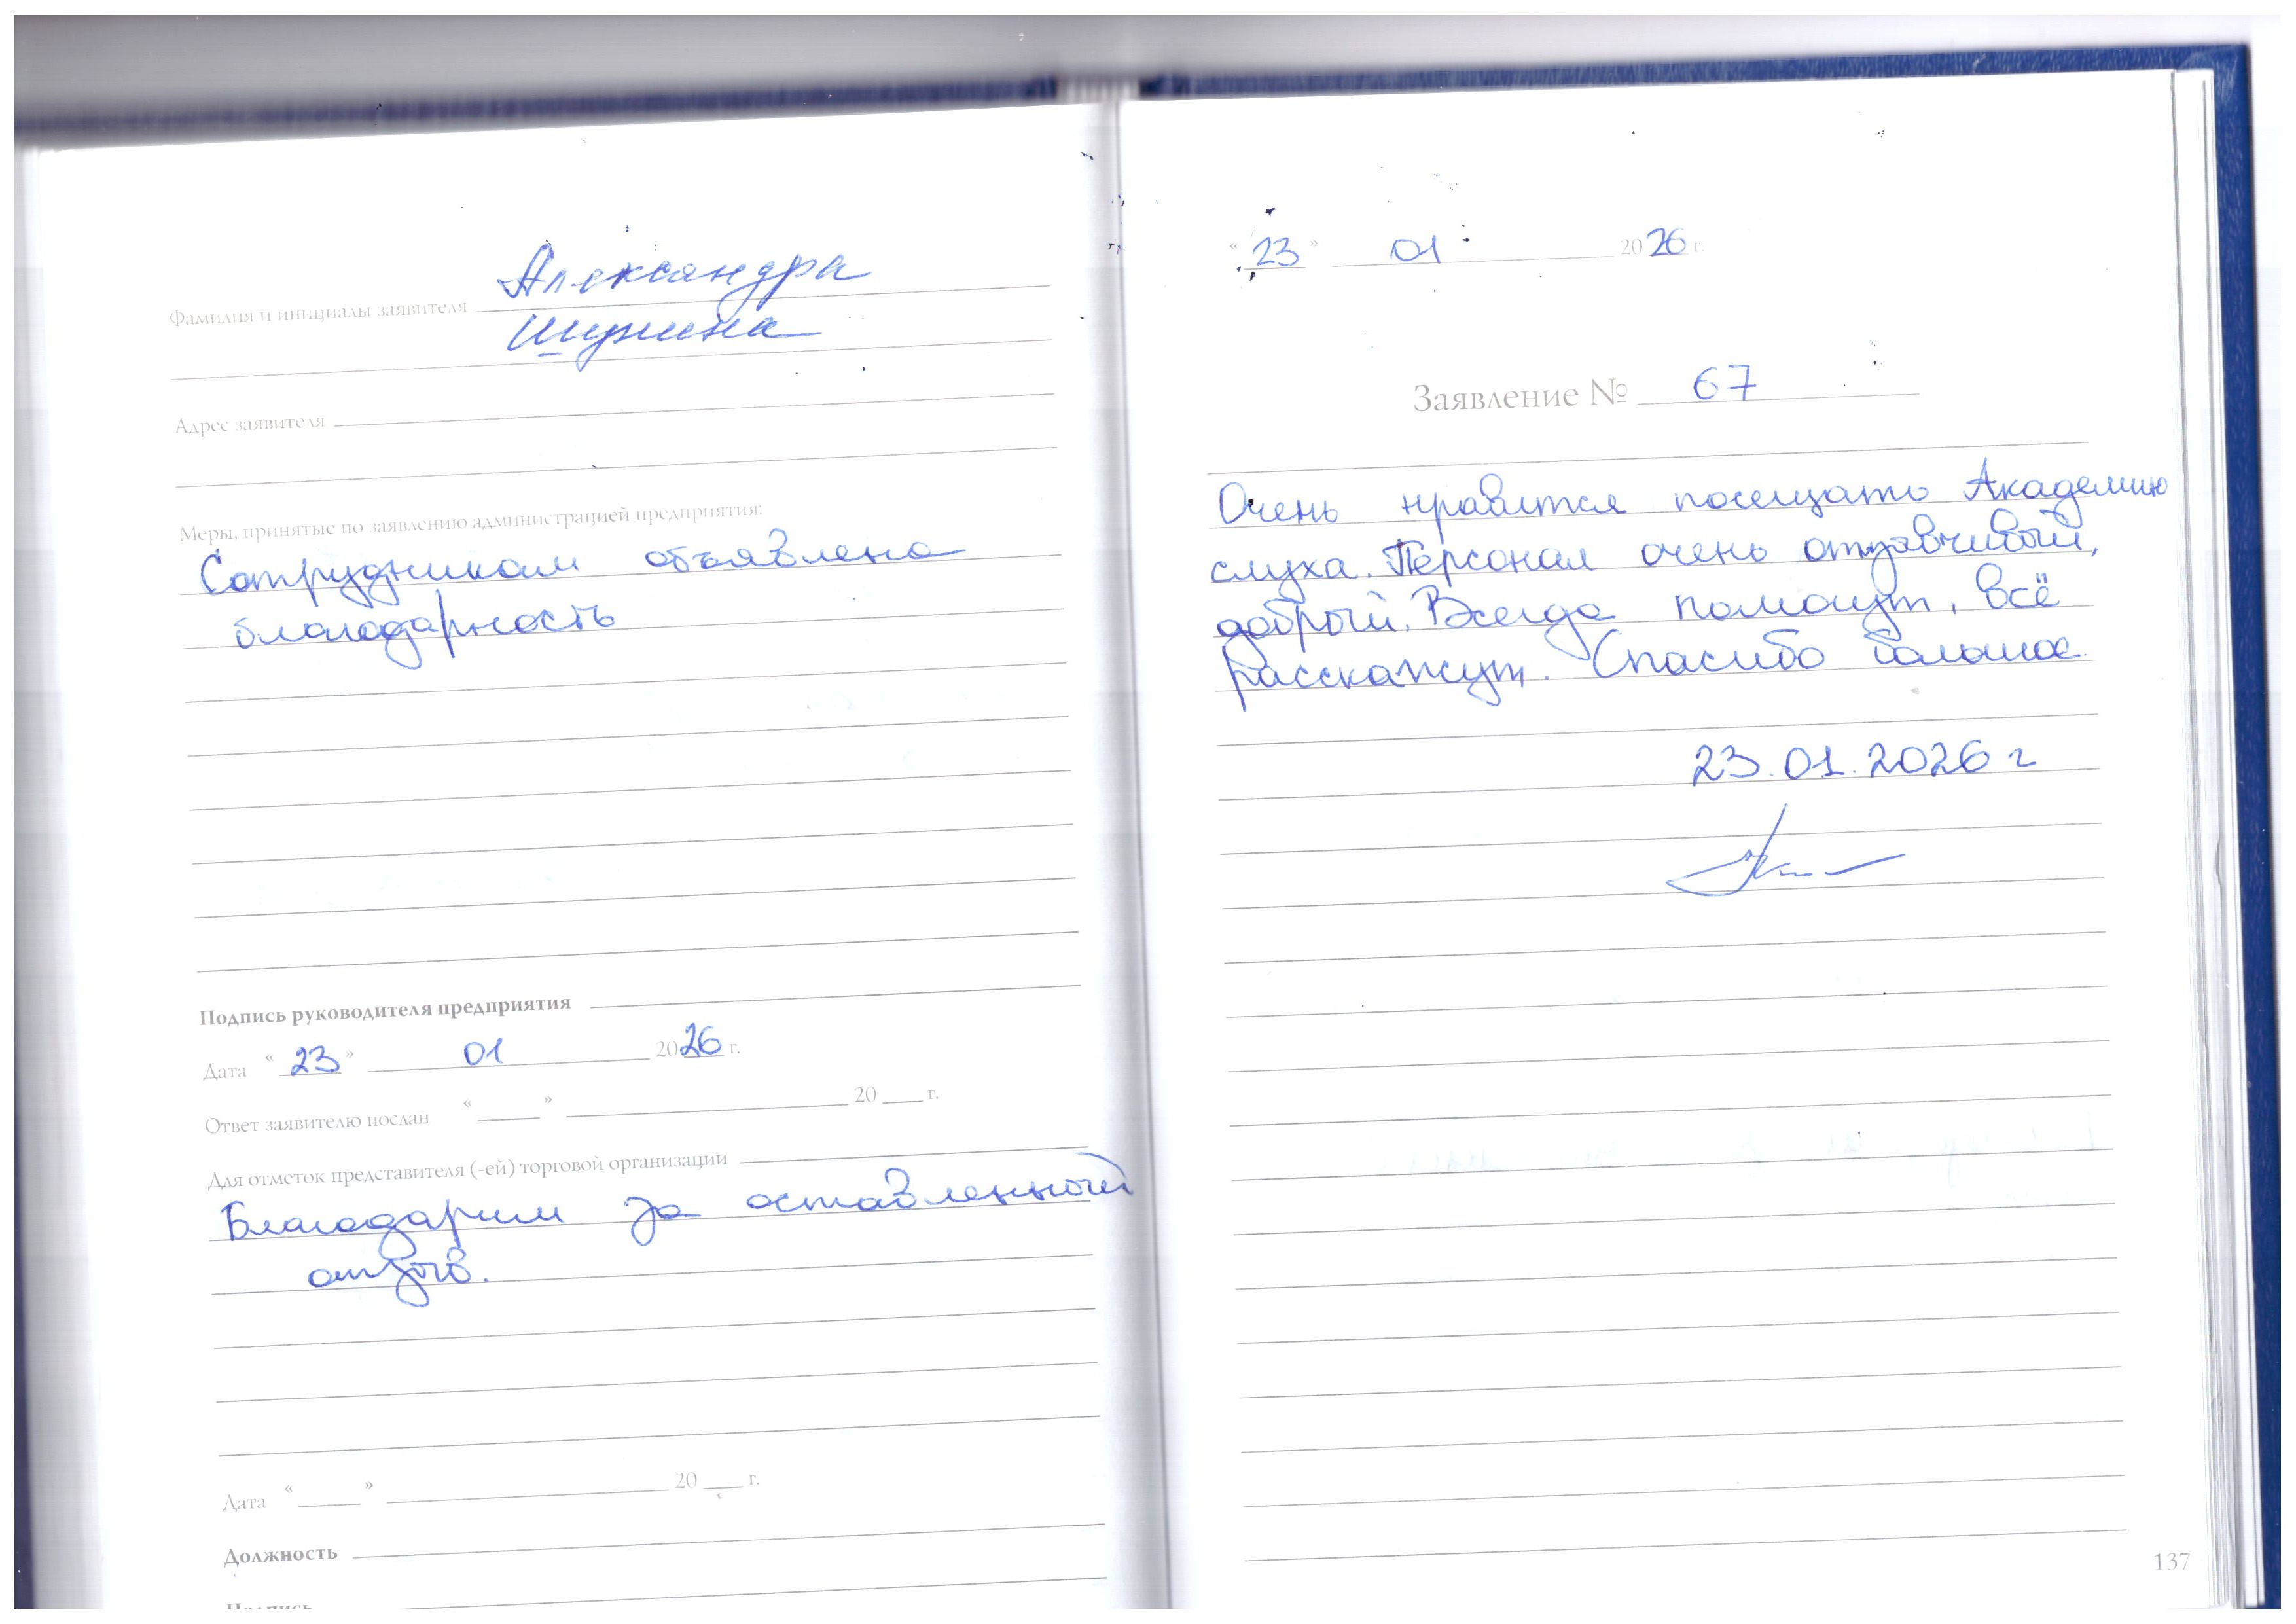 Фамилия и инициалы заявителя Александра
Адрес заявителя
Меры, принятые по заявлению администрацией предприятия:
Сотрудникам объявлена
благодарность
Подпись руководителя предприятия
Дата « 23 » 01 2026 г.
Ответ заявителю послан « » 20 г.
Для отметок представителя (-ей) торговой организации
Благодарим за оставленный
отзыв.
Дата « » 20 г.
Должность
Подпись
« 23 » 01 2026 г.
Заявление № 67
Очень нравится посещать Академию
слуха. Персонал очень отзывчивый,
добрый. Всегда помогут, всё
расскажут. Спасибо большое.
23.01.2026 г
137